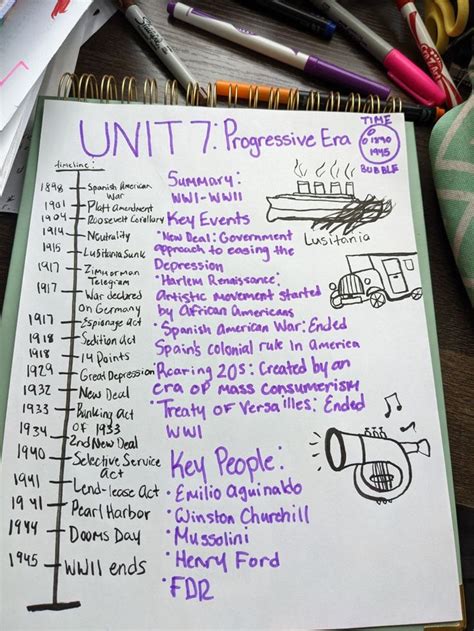 UNIT 7: Progressive Era
TIME
1890
1945
BUBBLE
timeline:
1898 Spanish American War
1901 Platt Amendment
1904 Roosevelt Corollary
1914 Neutrality
1915 Lusitania Sunk
1917 Zimmerman Telegram
1917 War declared on Germany
1917 Espionage Act
1918 Sedition Act
1918 14 Points
1929 Great Depression
1932 New Deal
1933 Banking Act OF 1933
1934 2nd New Deal
1940 Selective Service Act
1941 Lend-lease Act
1941 Pearl Harbor
1944 Dooms Day
1945 WWII ends
Summary:
WWI-WWII
Key Events
• New Deal: Government
approach to easing the
Depression
• Harlem Renaissance:
Artistic movement started
by African Americans
• Spanish American War: Ended
Spain's colonial rule In America
Roaring 20s: Created by an
era of mass consumerism
• Treaty of Versailles: Ended
WWI
Key People:
• Emilio Aguinaldo
• Winston Churchill
• Mussolini
• Henry Ford
• FDR
Lusitania
Sharpie